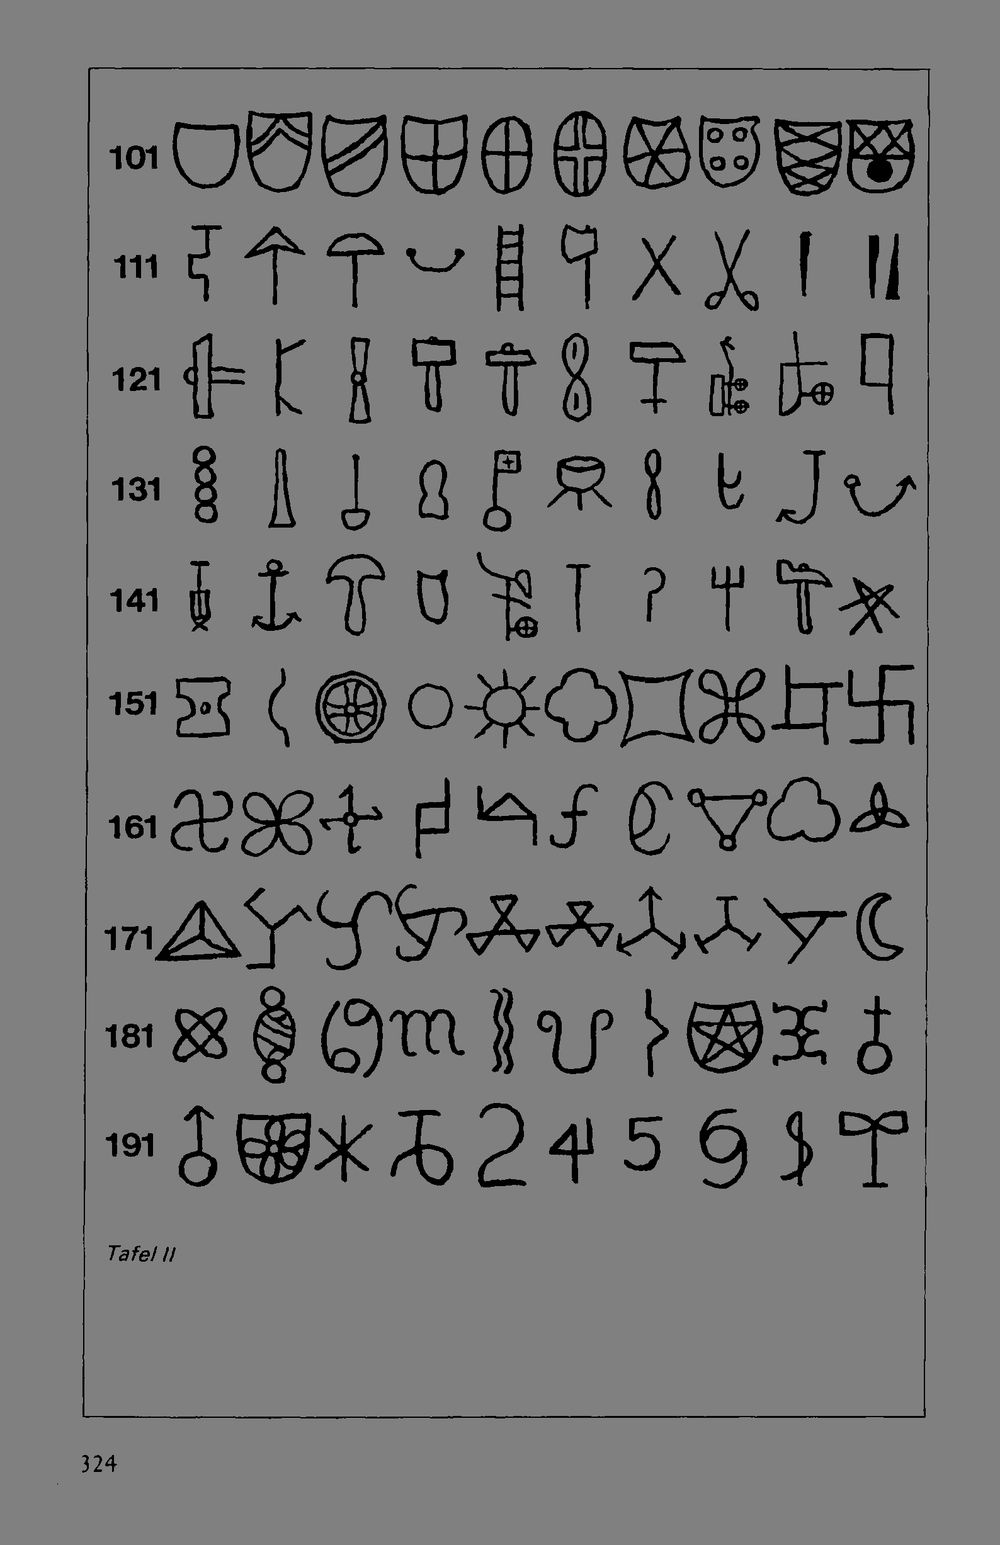 101
111
121
131
141
151
161
171
181
191 2 4 5 9
Tafel II
324